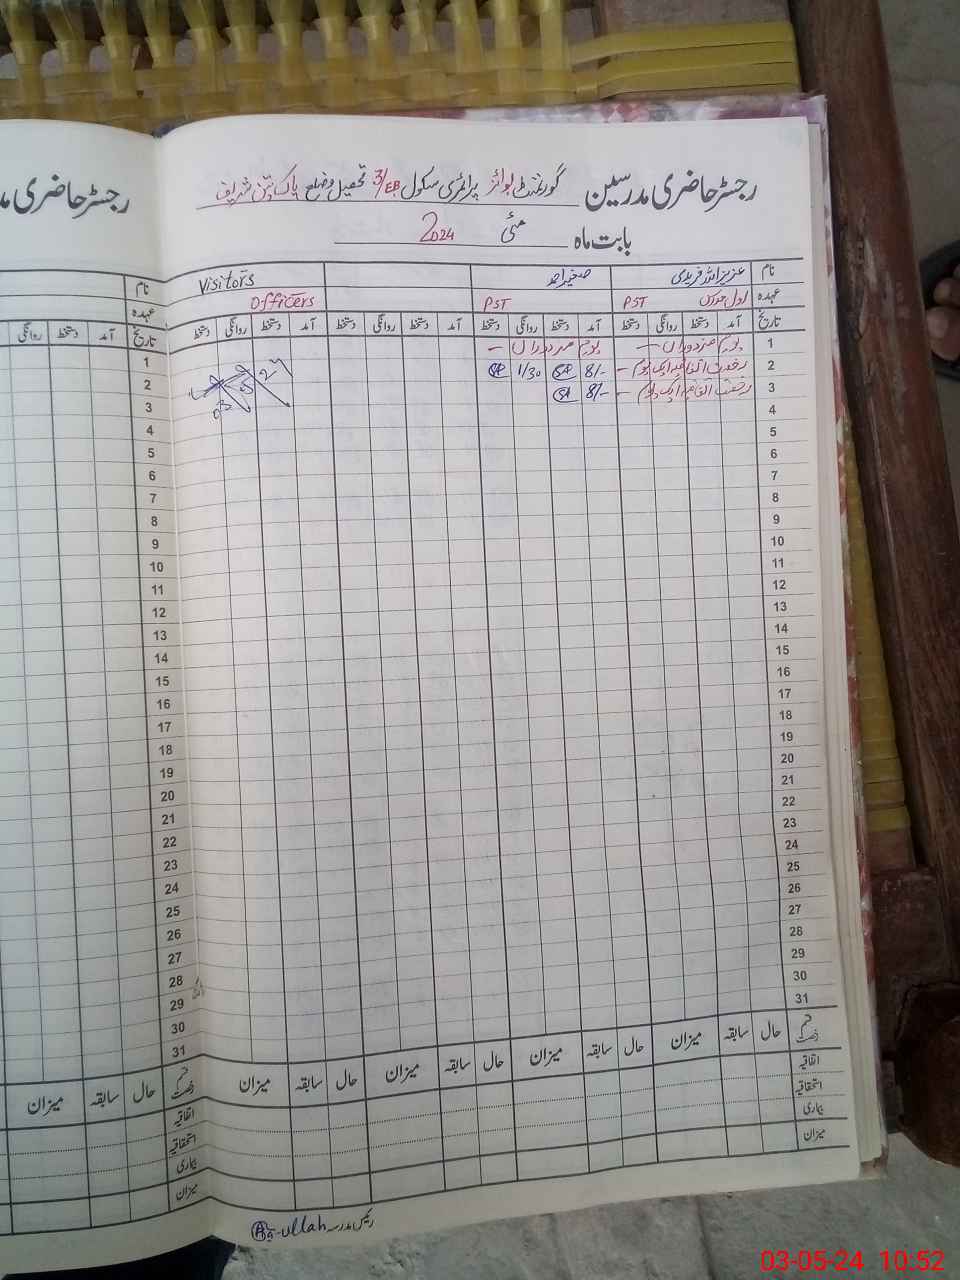 رجسٹر حاضری مدرسین گورنمنٹ بوائز پرائمری سکول 3/EB تحصیل و ضلع پاک پتن شریف
بابت ماہ مئی 2024
نام عزیز اللہ فریدی صغیر احمد Visitors
عہدہ اول مدرس PST PST Officers
تاریخ آمد دستخط روانگی دستخط آمد دستخط روانگی دستخط آمد دستخط روانگی دستخط آمد دستخط روانگی دستخط
1 یوم مزدوراں — یوم مزدوراں —
2 رخصت اتفاقیہ ایک یوم — 8/- 1/30
3 رخصت اتفاقیہ ایک یوم — 8/-
4
5
6
7
8
9
10
11
12
13
14
15
16
17
18
19
20
21
22
23
24
25
26
27
28
29
30
31
قسم رخصت حال سابقہ میزان حال سابقہ میزان حال سابقہ میزان حال سابقہ میزان
اتفاقیہ
استحقاقیہ
بیماری
میزان
رئیس مدرسہ
رجسٹر حاضری
نام
عہدہ
تاریخ آمد دستخط روانگی
1
2
3
4
5
6
7
8
9
10
11
12
13
14
15
16
17
18
19
20
21
22
23
24
25
26
27
28
29
30
31
قسم رخصت حال سابقہ میزان
اتفاقیہ
استحقاقیہ
بیماری
میزان
03-05-24 10:52